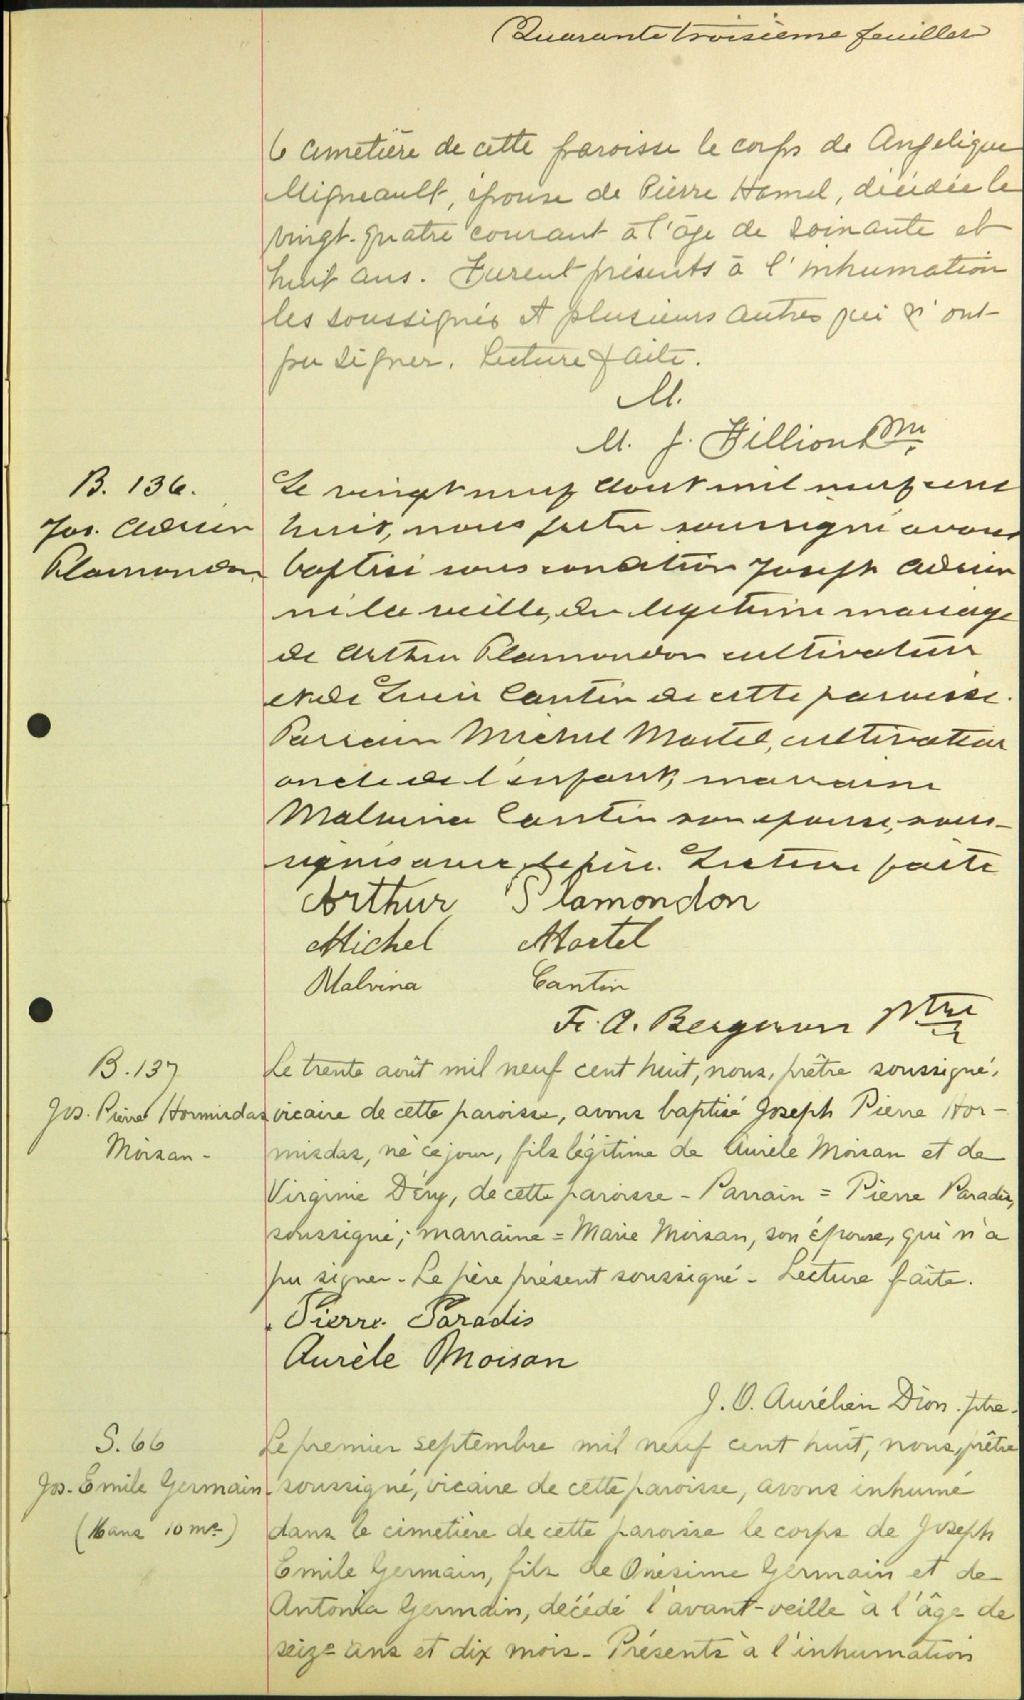 Quarante troisième feuillet
le cimetière de cette paroisse le corps de Angelique
Migneault, épouse de Pierre Hamel, décédée le
vingt-quatre courant à l'âge de soixante et
huit ans. Furent présents à l'inhumation
les soussignés et plusieurs autres qui n'ont
pu signer. Lecture faite.
M.
M. J. Fillion Ptre
B. 136.
Jos. Adrien
Plamondon
Le vingt neuf août mil neuf cent
huit, nous prêtre soussigné avons
baptisé sous condition Joseph Adrien
né la veille, du légitime mariage
de Arthur Plamondon cultivateur
et de Lucie Cantin de cette paroisse.
Parrain Michel Martel, cultivateur
oncle de l'enfant, marraine
Malvina Cantin son épouse, sous-
signés avec le père. Lecture faite
Arthur Plamondon
Michel Martel
Malvina Cantin
F. A. Bergeron Ptre
B. 137
Jos. Pierre Hormisdas
Moisan -
Le trente août mil neuf cent huit, nous, prêtre soussigné,
vicaire de cette paroisse, avons baptisé Joseph Pierre Hor-
misdas, né ce jour, fils légitime de Aurèle Moisan et de
Virginie Déry, de cette paroisse - Parrain = Pierre Paradis,
soussigné; marraine = Marie Moisan, son épouse, qui n'a
pu signer - Le père présent soussigné - Lecture faite.
Pierre Paradis
Aurèle Moisan
J. O. Aurélien Dion. ptre -
S. 66
Jos. Emile Germain
(16 ans 10 ms)
Le premier septembre mil neuf cent huit, nous, prêtre
soussigné, vicaire de cette paroisse, avons inhumé
dans le cimetière de cette paroisse le corps de Joseph
Emile Germain, fils de Onésime Germain et de
Antonia Germain, décédé l'avant-veille à l'âge de
seize ans et dix mois - Présents à l'inhumation